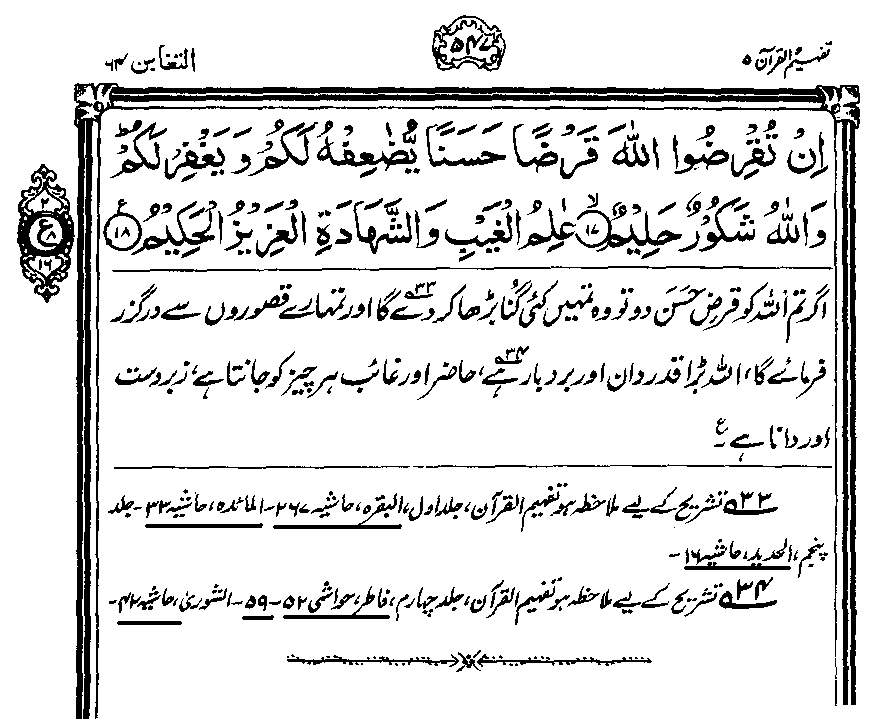 تفہیم القرآن ۵
۵۴۷
التغابن ۶۴
اِنْ تُقْرِضُوا اللّٰهَ قَرْضًا حَسَنًا يُّضٰعِفْهُ لَكُمْ وَ يَغْفِرْ لَكُمْ ؕ
وَاللّٰهُ شَكُوْرٌ حَلِيْمٌ ۙ‏﴿۱۷﴾ عٰلِمُ الْغَيْبِ وَالشَّهَادَةِ الْعَزِيْزُ الْحَكِيْمُ ﴿۱۸﴾ ع
۲
ع ۸
۱۶
اگر تم اللہ کو قرضِ حَسَن دو تو وہ تمہیں کئی گُنا بڑھا کر دے گا ۳۳ اور تمہارے قصوروں سے درگزر
فرمائے گا، اللہ بڑا قدردان اور بردبار ہے ۳۴، حاضر اور غائب ہر چیز کو جانتا ہے، زبردست
اور دانا ہے۔ ع
۳۳ تشریح کے لیے ملاحظہ ہو تفہیم القرآن، جلد اول، البقرہ، حاشیہ ۲۶۷۔ المائدہ، حاشیہ ۳۳۔ جلد
پنجم، الحدید، حاشیہ ۱۶۔
۳۴ تشریح کے لیے ملاحظہ ہو تفہیم القرآن، جلد چہارم، فاطر، حواشی ۵۲۔ ۵۹۔ الشوریٰ، حاشیہ ۴۲۔